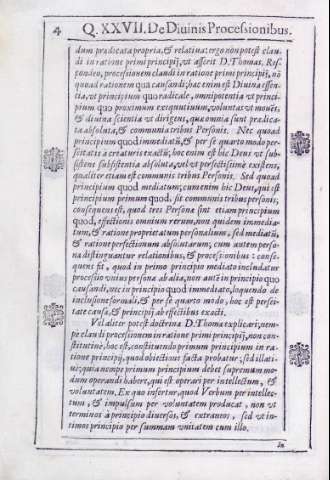 4 Q. XXVII. De Diuinis Processionibus.
dum prædicata propria, & relatiua: ergo non potest clau-
di in ratione primi principij, vt asserit D. Thomas. Res-
pondeo, processionem claudi in ratione primi principij, nō
quoad rationem qua causandi; hæc enim est Diuina essen-
tia, vt principium quo radicale, omnipotentia vt princi-
pium quo proximum exequutiuum, voluntas vt mouēs,
& diuina scientia vt dirigens, quæ omnia sunt prædica-
ta absoluta, & communia tribus Personis. Nec quoad
principium quod immediatū, & per se quarto modo per-
seitatis à creaturis exactū; hoc enim est hic Deus vt sub-
sistens subsistentia absoluta, vel vt perfectissimè existens,
qualiter etiam est communis tribus Personis. Sed quoad
principium quod mediatum; cum enim hic Deus, qui est
principium primum quod, sit communis tribus personis,
consequens est, quod tres Personæ sint etiam principium
quod, effectionis omnium rerum, non quidem immedia-
tum, & ratione proprietatum personalium, sed mediatū,
& ratione perfectionum absolutarum; cum autem perso-
na distinguantur relationibus, & processionibus: conse-
quens fit, quod in primo principio mediato includatur
processio vnius personæ ab alia, non autē in principio quo
causandi, nec in principio quod immediato, loquendo de
inclusione formali, & per se quarto modo, hoc est persei-
tate causæ, & principij ab effectibus exacti.
Vel aliter potest doctrina D. Thomæ explicari, nem-
pè claudi processionem in ratione primi principij, non con-
stitutiuè, hoc est, constituendo primum principium in ra-
tione principij, quod obiectiones facta probatur; sed illati-
uè; quia nempè primum principium debet supremum mo-
dum operandi habere, qui est operari per intellectum, &
voluntatem. Ex quo infertur, quod Verbum per intellec-
tum, & impulsum per voluntatem producat, non vt
terminos à principio diuersos, & extraneos, sed vt in-
timos principio per summam vnitatem cum illo.
In